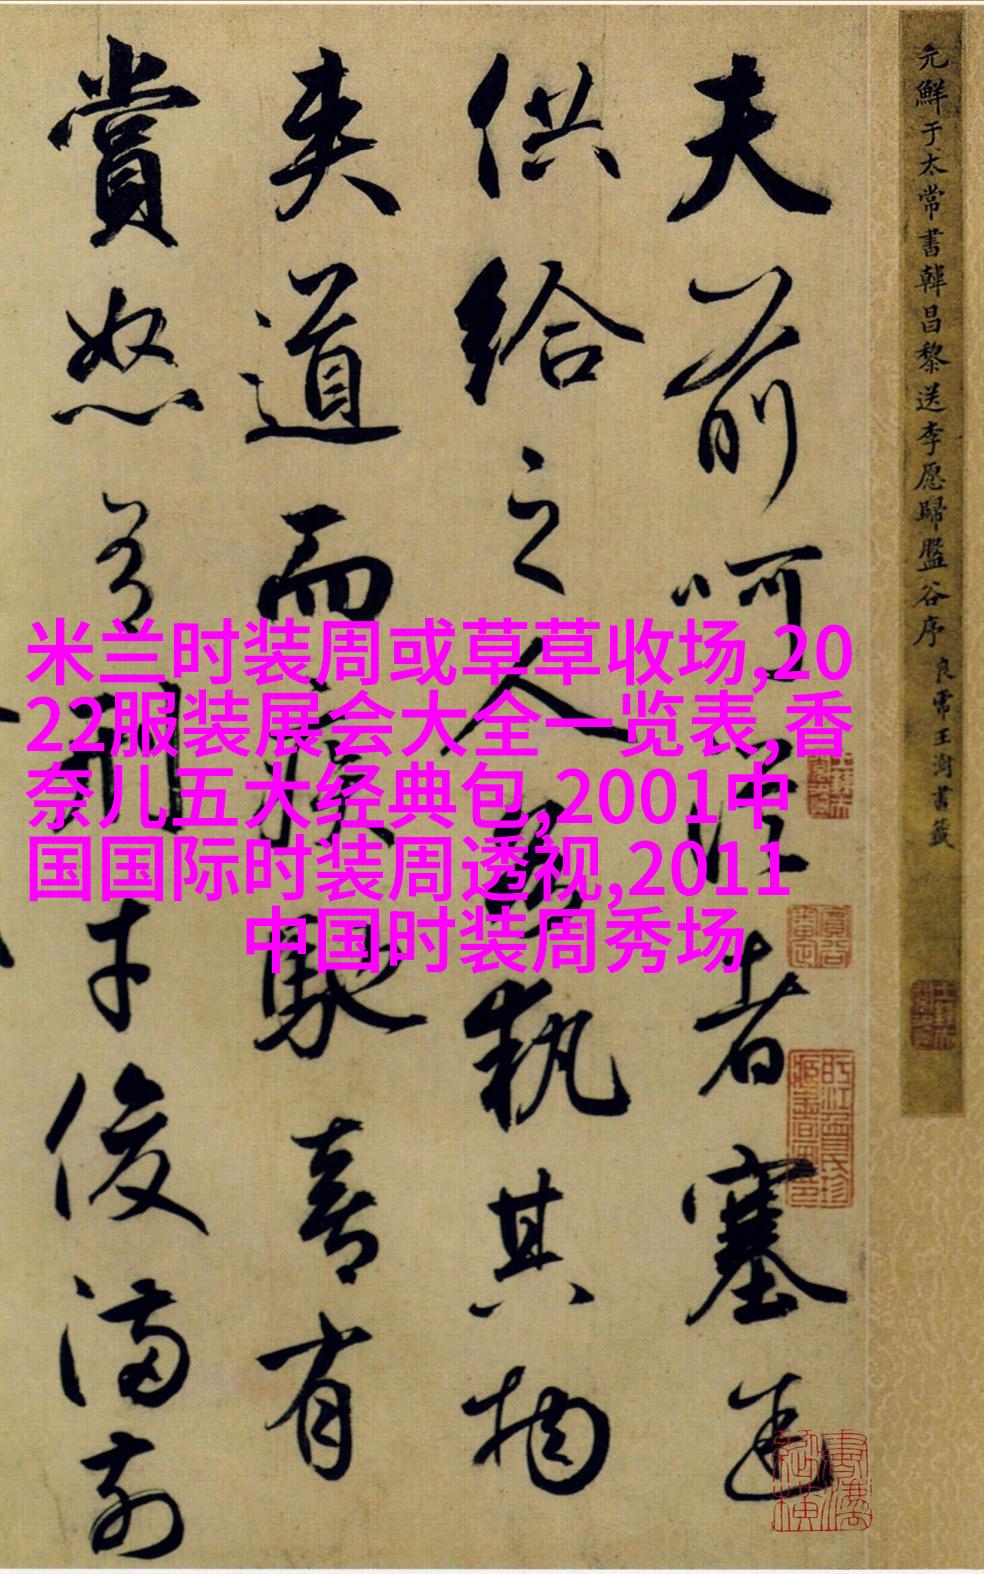 元鮮于太常書韓昌黎送李愿歸盤谷序 良常王澍書籤
夫前呵從者塞途
供給之人各執其物
夾道而疾馳喜有
賞怒有刑才俊滿前
米兰时装周或草草收场,20
22服装展会大全一览表,香
奈儿五大经典包,2001中
国国际时装周透视,2011
中国时装周秀场